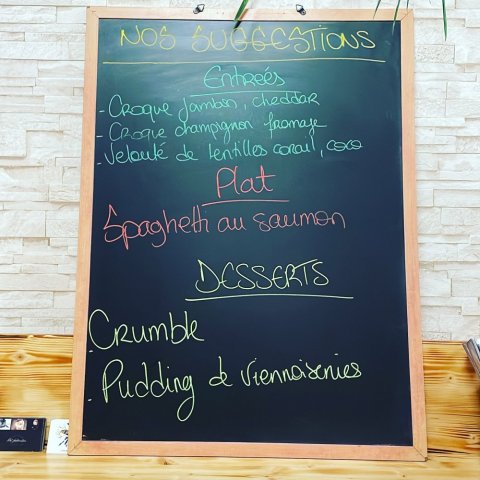 NOS SUGGESTIONS
Entreés
- Croque jambon, cheddar
- Croque champignon fromage
- Velouté de lentilles corail, coco
Plat
Spaghetti au saumon
DESSERTS
Crumble
. Pudding de viennoiseries